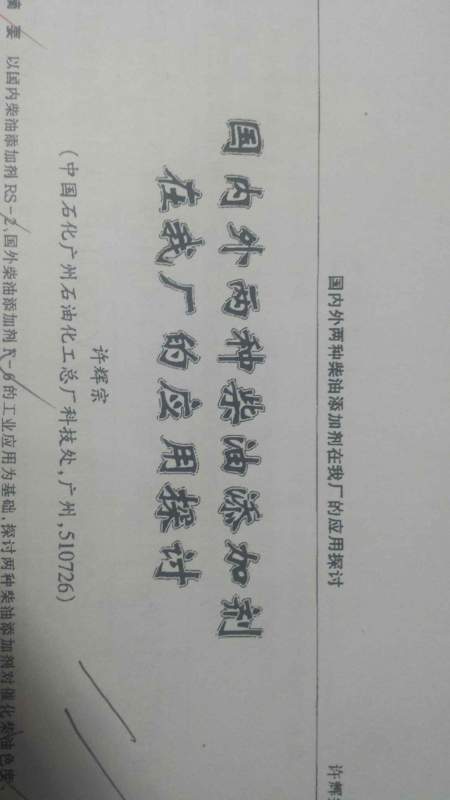 国内外两种柴油添加剂在我厂的应用探讨
许辉
国内外两种柴油添加剂
在我厂的应用探讨
许辉宗
(中国石化广州石油化工总厂科技处,广州,510726)
摘 要 以国内柴油添加剂RS-2、国外柴油添加剂R-6的工业应用为基础,探讨两种柴油添加剂对催化柴油色度、